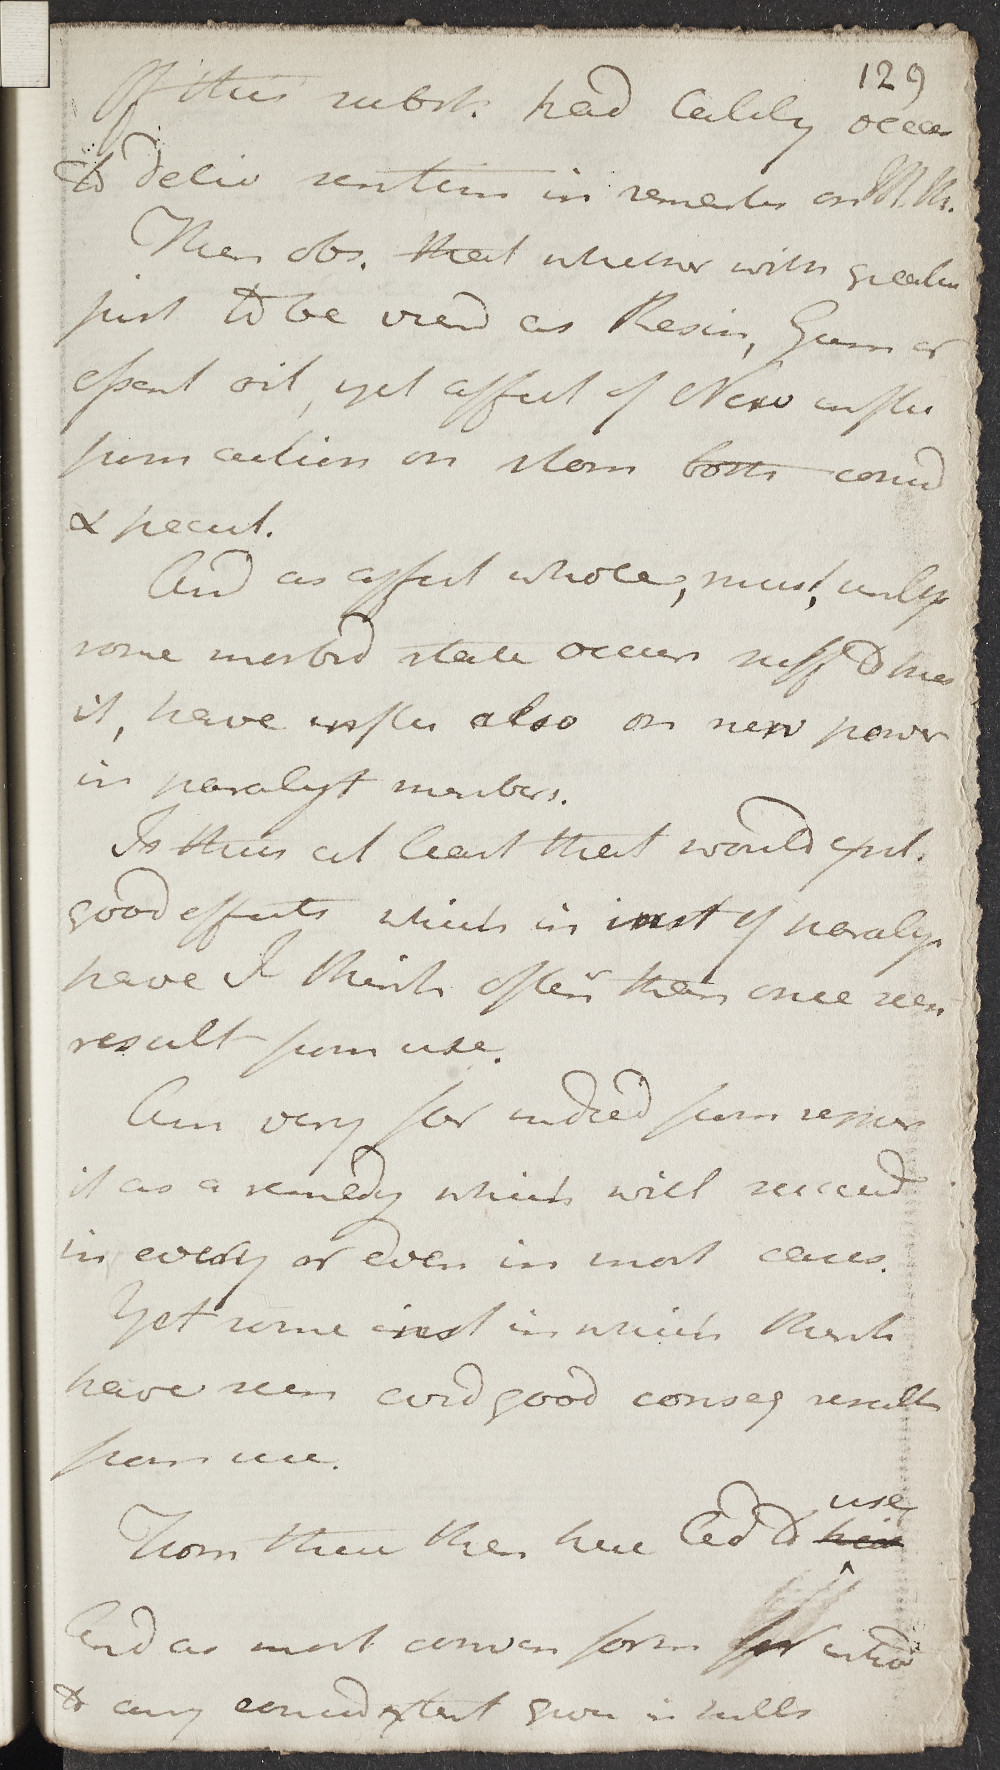 129
Of this subst. had lately occas
to deliv sentim in remarks on M.M.
Then obs. that whether with greatest
just to be view'd as Resin, Gum or
essent oil, yet affect of Nerv influ
from action on stom both consid
& pecul.
And as affect whole, must, unless
some morbid state occurs suff to
it, have influ also on nerv power
in paralyt members.
Is this at least that would expl.
good effects which in inst of paralys
have I think often'r than once seen
result from use.
Am very far indeed from repres
it as a remedy which will succeed
in every or even in most cases.
Yet some inst in which think
have seen cosid good conseq result
from use.
From these then here led to his use
And as most conven form for introd
to any consid extent give in pills